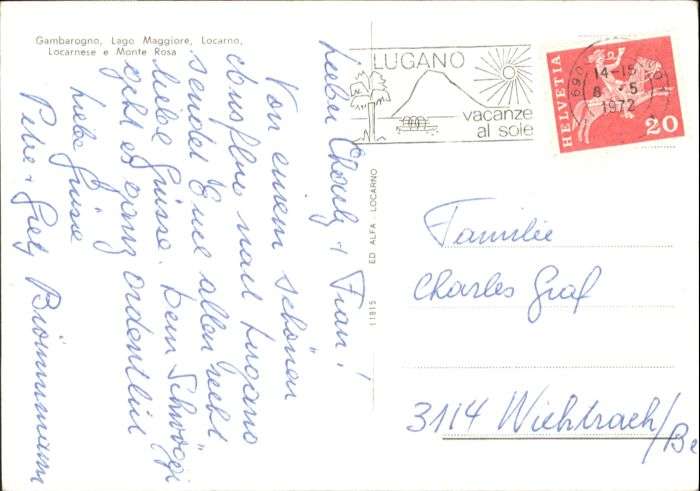 Gambarogno, Lago Maggiore, Locarno,
Locarnese e Monte Rosa
Lieber Charly + Frau!
Von einem schönen
Ausflug nach Lugano
sendet Euch allen recht
liebe Grüsse. Dein Schwöggi
geht es ganz ordentlich
Liebe Grüsse
Peter + Grety Brönnimann
11915 ED ALFA - LOCARNO
LUGANO
vacanze
al sole
14-15
8.-5
1972
HELVETIA
20
Familie
Charles Graf
3114 Wichtrach/Be